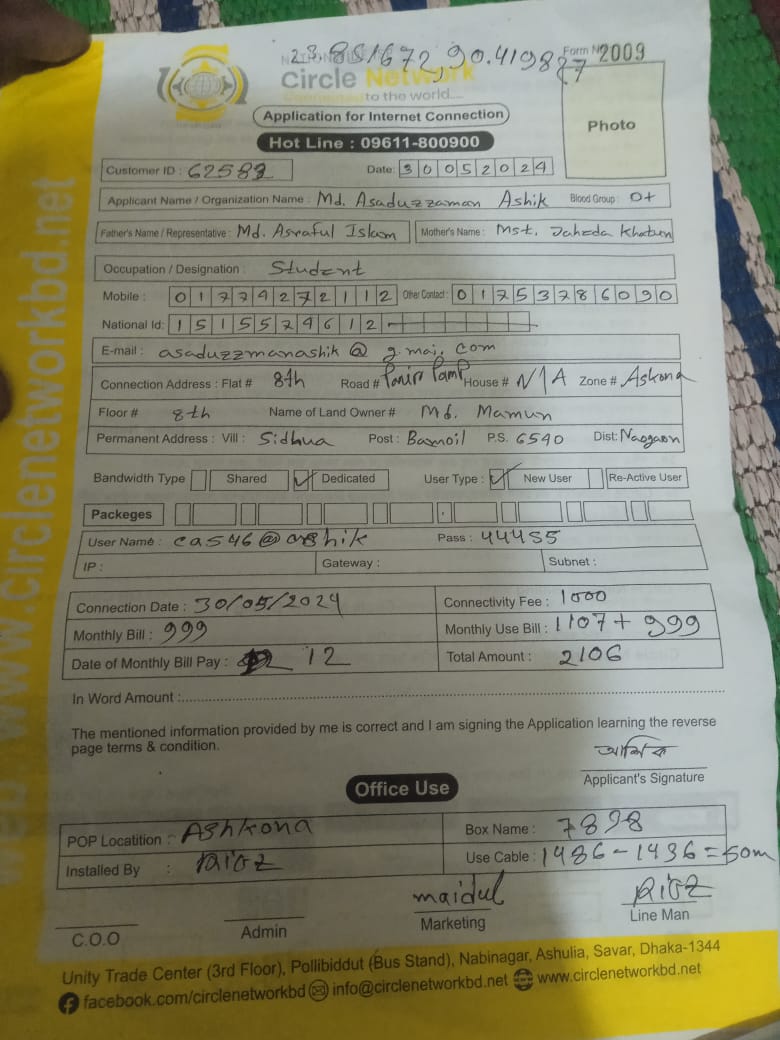 23.851672, 90.419827
Form No 2009
Circle Network
Connected to the world....
Application for Internet Connection
Hot Line : 09611-800900
Photo
Customer ID : 62583 Date: 30052024
Applicant Name / Organization Name : Md. Asaduzzaman Ashik Blood Group : O+
Father's Name / Representative : Md. Asraful Islam Mother's Name : Mst. Jaheda Khatun
Occupation / Designation : Student
Mobile : 01774272112 Other Contact : 01753786090
National Id: 1515574612
E-mail : asaduzzmanashik @ g.mai. com
Connection Address : Flat # 8th Road # Panir Pamp House # N/A Zone # Askona
Floor # 8th Name of Land Owner # Md. Mamun
Permanent Address : Vill : Sidhua Post : Bamoil P.S. 6540 Dist: Naogaon
Bandwidth Type Shared Dedicated User Type : New User Re-Active User
Packeges
User Name : ca546@ashik Pass : 44455
IP : Gateway : Subnet :
Connection Date : 30/05/2024 Connectivity Fee : 1000
Monthly Bill : 999 Monthly Use Bill : 1107 + 999
Date of Monthly Bill Pay : 12 Total Amount : 2106
In Word Amount :
The mentioned information provided by me is correct and I am signing the Application learning the reverse
page terms & condition.
আশিক
Applicant's Signature
Office Use
POP Locatition : Ashkona Box Name : 7898
Installed By : Use Cable : 1486 - 1436 = 50m
maidul
C.O.O Admin Marketing Line Man
Unity Trade Center (3rd Floor), Pollibiddut (Bus Stand), Nabinagar, Ashulia, Savar, Dhaka-1344
facebook.com/circlenetworkbd info@circlenetworkbd.net www.circlenetworkbd.net
web: www.circlenetworkbd.net